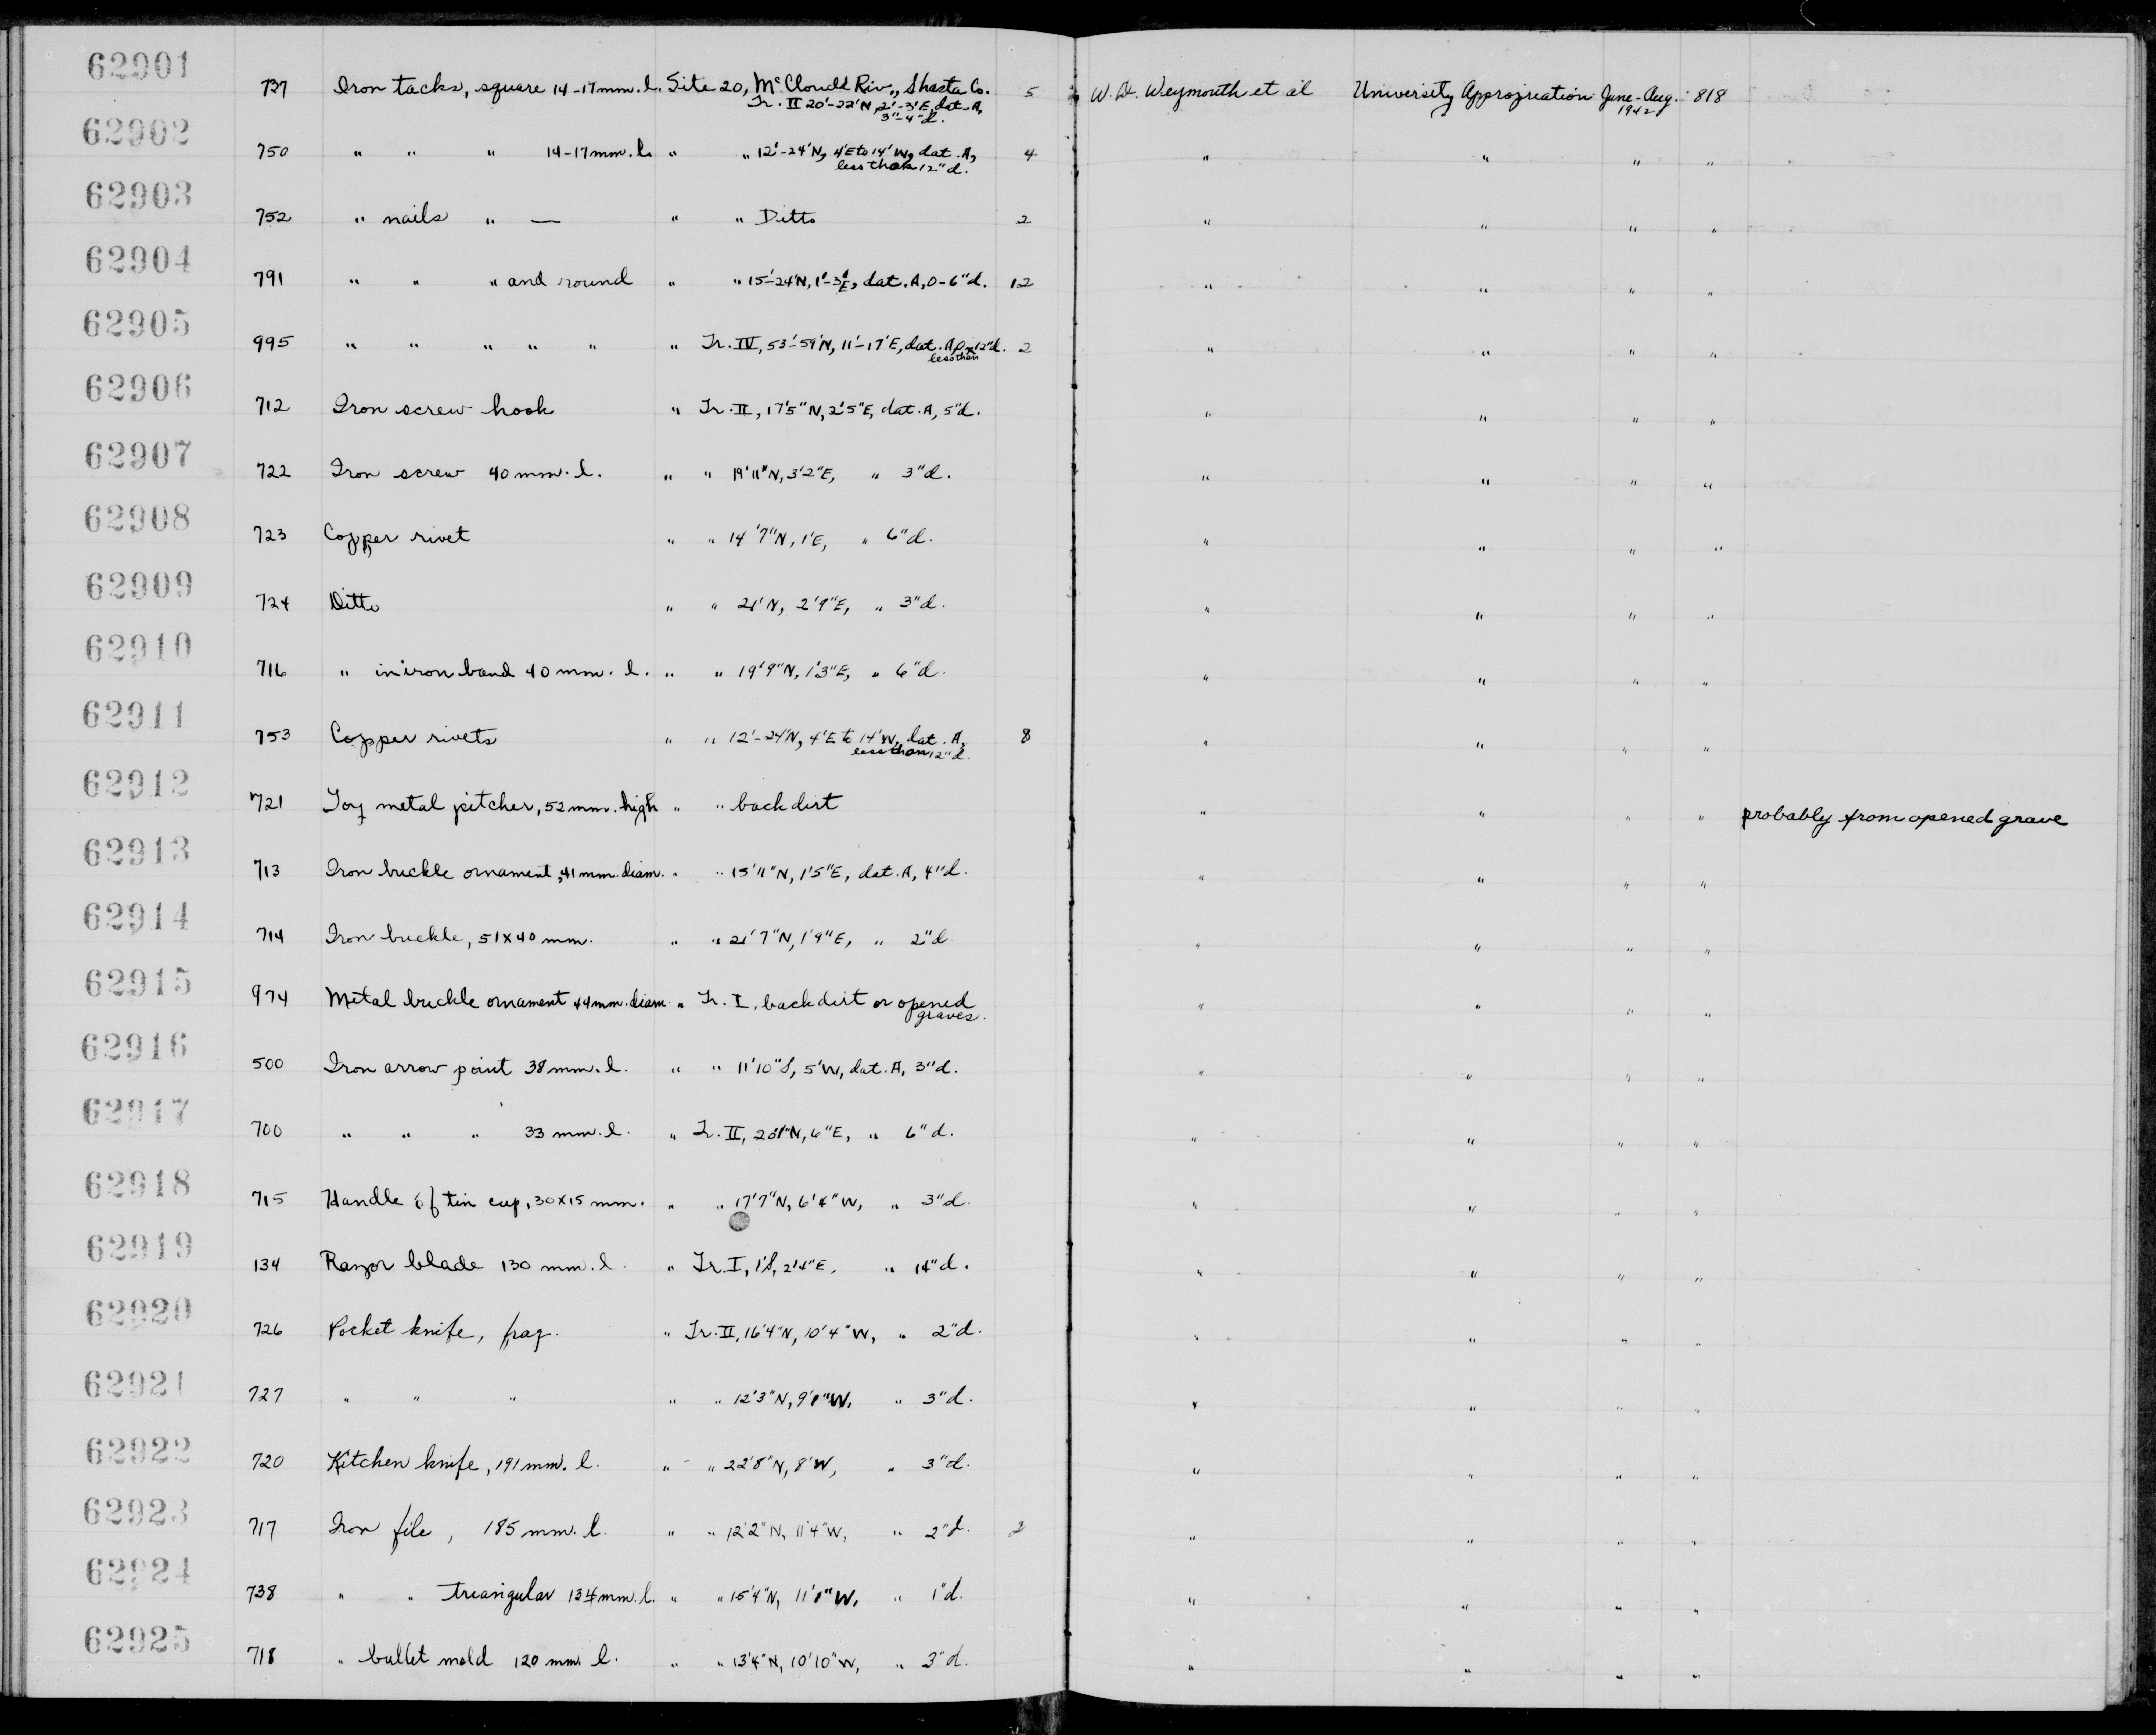 62901 737 Iron tacks, square 14-17mm. l. Site 20, McCloud Riv., Shasta Co. 5 W. D. Weymouth et al University Appropriation June-Aug. 818
Tr. II 20'-22'N, 2'-3'E, dat. A, 1942
3"-4"d.
62902 750 " " " 14-17mm. l. " " 12'-24'N, 4'E to 14'W, dat. A, 4 " " " "
less than 12"d.
62903 752 " nails " — " " Ditto 2 " " " "
62904 791 " " " and round " " 15'-24'N, 1'-3'E, dat. A, 0-6"d. 12 " " " "
62905 995 " " " " " " Tr. IV, 53'-59'N, 11'-17'E, dat. A, 12"d. 2 " " " "
less than
62906 712 Iron screw hook " Tr. II, 17'5"N, 2'5"E, dat. A, 5"d. " " " "
62907 722 Iron screw 40mm. l. " " 19'11"N, 3'2"E, " 3"d. " " " "
62908 723 Copper rivet " " 14'7"N, 1'E, " 6"d. " " " "
62909 724 Ditto " " 21'N, 2'9"E, " 3"d. " " " "
62910 716 " in iron band 40mm. l. " " 19'9"N, 1'3"E, " 6"d. " " " "
62911 753 Copper rivets " " 12'-24'N, 4'E to 14'W, dat. A, 8 " " " "
less than 12"d.
62912 721 Toy metal pitcher, 52mm. high " " back dirt " " " " probably from opened grave
62913 713 Iron buckle ornament, 41mm. diam. " " 15'11"N, 1'5"E, dat. A, 4"d. " " " "
62914 714 Iron buckle, 51x40mm. " " 21'7"N, 1'9"E, " 2"d. " " " "
62915 974 Metal buckle ornament 44mm. diam. " Tr. I, back dirt or opened " " " "
graves.
62916 500 Iron arrow point 38mm. l. " " 11'10"S, 5'W, dat. A, 3"d. " " " "
62917 700 " " " 33 mm. l. " Tr. II, N, 6"E, " 6"d. " " " "
62918 715 Handle of tin cup, 30x15mm. " " 17'7"N, 6'4"W, " 3"d. " " " "
62919 134 Razor blade 130 mm. l. " Tr. I, 1'S, 2'4"E, " 14"d. " " " "
62920 726 Pocket knife, frag. " Tr. II, 16'4"N, 10'4"W, " 2"d. " " " "
62921 727 " " " " " 12'3"N, 9'1"W, " 3"d. " " " "
62922 720 Kitchen knife, 191mm. l. " " 22'8"N, 8'W, " 3"d. " " " "
62923 717 Iron file, 185mm. l. " " 12'2"N, 11'4"W, " 2"d. 2 " " " "
62924 738 " " triangular 134mm. l. " " 15'4"N, 11'1"W, " 1"d. " " " "
62925 718 " bullet mold 120mm. l. " " 13'4"N, 10'10"W, " 3"d. " " " "